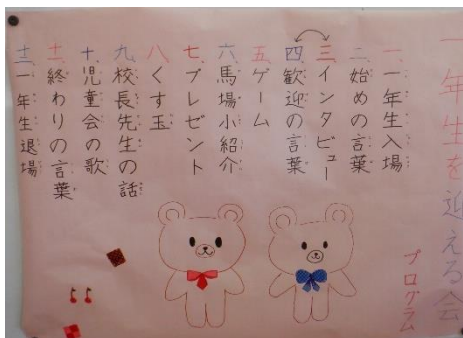 一年生を迎える会
プログラム
一、一年生入場
二、始めの言葉
三、インタビュー
四、歓迎の言葉
五、ゲーム
六、馬場小紹介
七、プレゼント
八、くす玉
九、校長先生の話
十、児童会の歌
十一、終わりの言葉
十二、一年生退場